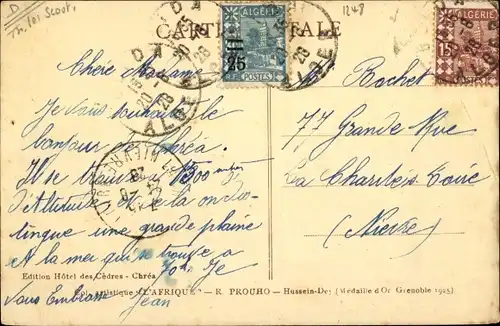 CARTE POSTALE
1248
ALGÉRIE
25
R.F. POSTES
ALGÉRIE
15
POSTES
Chère Madame
Je vous souhaite le
bonjour de Chréa.
Il se trouve à 1500 mètres
d'altitude et de là on dis-
tingue une grande plaine
et la mer qui se trouve à
70 k. Je
vous embrasse Jean
Rochet
77 Grande Rue
La Charités Loire
(Nièvre)
Edition Hôtel des Cèdres - Chréa
Col. artistique "L'AFRIQUE" — R. PROUHO — Hussein-Dey (Médaille d'Or Grenoble 1925)